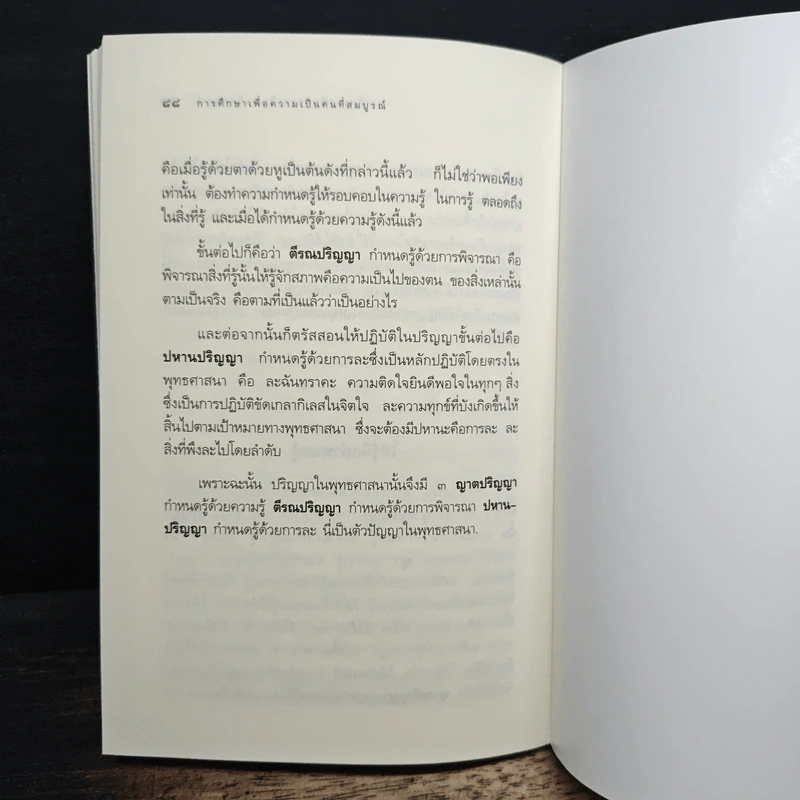 ๘๘ การศึกษาเพื่อความเป็นคนที่สมบูรณ์
คือเมื่อรู้ด้วยตาด้วยหูเป็นต้นดังที่กล่าวนี้แล้ว ก็ไม่ใช่ว่าพอเพียง
เท่านั้น ต้องทำความกำหนดรู้ให้รอบคอบในความรู้ ในการรู้ ตลอดถึง
ในสิ่งที่รู้ และเมื่อได้กำหนดรู้ด้วยความรู้ดังนี้แล้ว
ขั้นต่อไปก็คือว่า ตีรณปริญญา กำหนดรู้ด้วยการพิจารณา คือ
พิจารณาสิ่งที่รู้นั้นให้รู้จักสภาพคือความเป็นไปของตน ของสิ่งเหล่านั้น
ตามเป็นจริง คือตามที่เป็นแล้วว่าเป็นอย่างไร
และต่อจากนั้นก็ตรัสสอนให้ปฏิบัติในปริญญาขั้นต่อไปคือ
ปหานปริญญา กำหนดรู้ด้วยการละซึ่งเป็นหลักปฏิบัติโดยตรงใน
พุทธศาสนา คือ ละฉันทราคะ ความติดใจยินดีพอใจในทุกๆ สิ่ง
ซึ่งเป็นการปฏิบัติขัดเกลากิเลสในจิตใจ ละความทุกข์ที่บังเกิดขึ้นให้
สิ้นไปตามเป้าหมายทางพุทธศาสนา ซึ่งจะต้องมีปหานะคือการละ ละ
สิ่งที่พึงละไปโดยลำดับ
เพราะฉะนั้น ปริญญาในพุทธศาสนานั้นจึงมี ๓ ญาตปริญญา
กำหนดรู้ด้วยความรู้ ตีรณปริญญา กำหนดรู้ด้วยการพิจารณา ปหาน-
ปริญญา กำหนดรู้ด้วยการละ นี่เป็นตัวปัญญาในพุทธศาสนา.